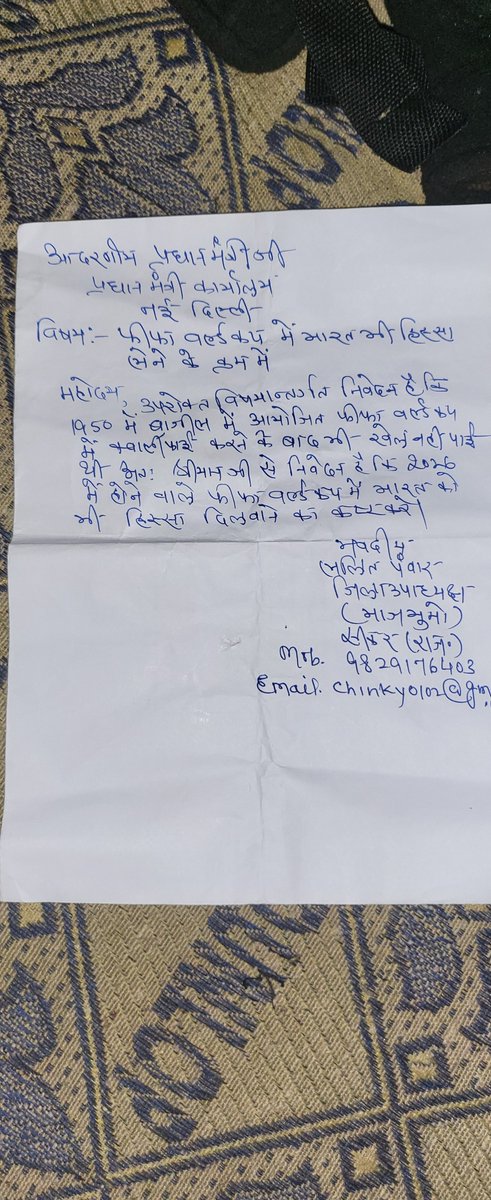 आदरणीय प्रधान मंत्री जी
प्रधान मंत्री कार्यालय
नई दिल्ली
विषय:- फीफा वर्ल्ड कप में भारत भी हिस्सा
लेने के क्रम में
महोदय, उपरोक्त विषयान्तर्गत निवेदन है कि
1950 में ब्राजील में आयोजित फीफा वर्ल्ड कप
में क्वालीफाई करने के बाद भी खेल नही पाई
थी अतः श्रीमान जी से निवेदन है कि 2026
में होने वाले फीफा वर्ल्ड कप में भारत को
भी हिस्सा दिलवाने का कष्ट करें।
भवदीय
ललित पंवार
जिला उपाध्यक्ष
(भाजयुमो)
सीकर (राज॰)
Mob. 9829176403
Email. chinky0102@gm